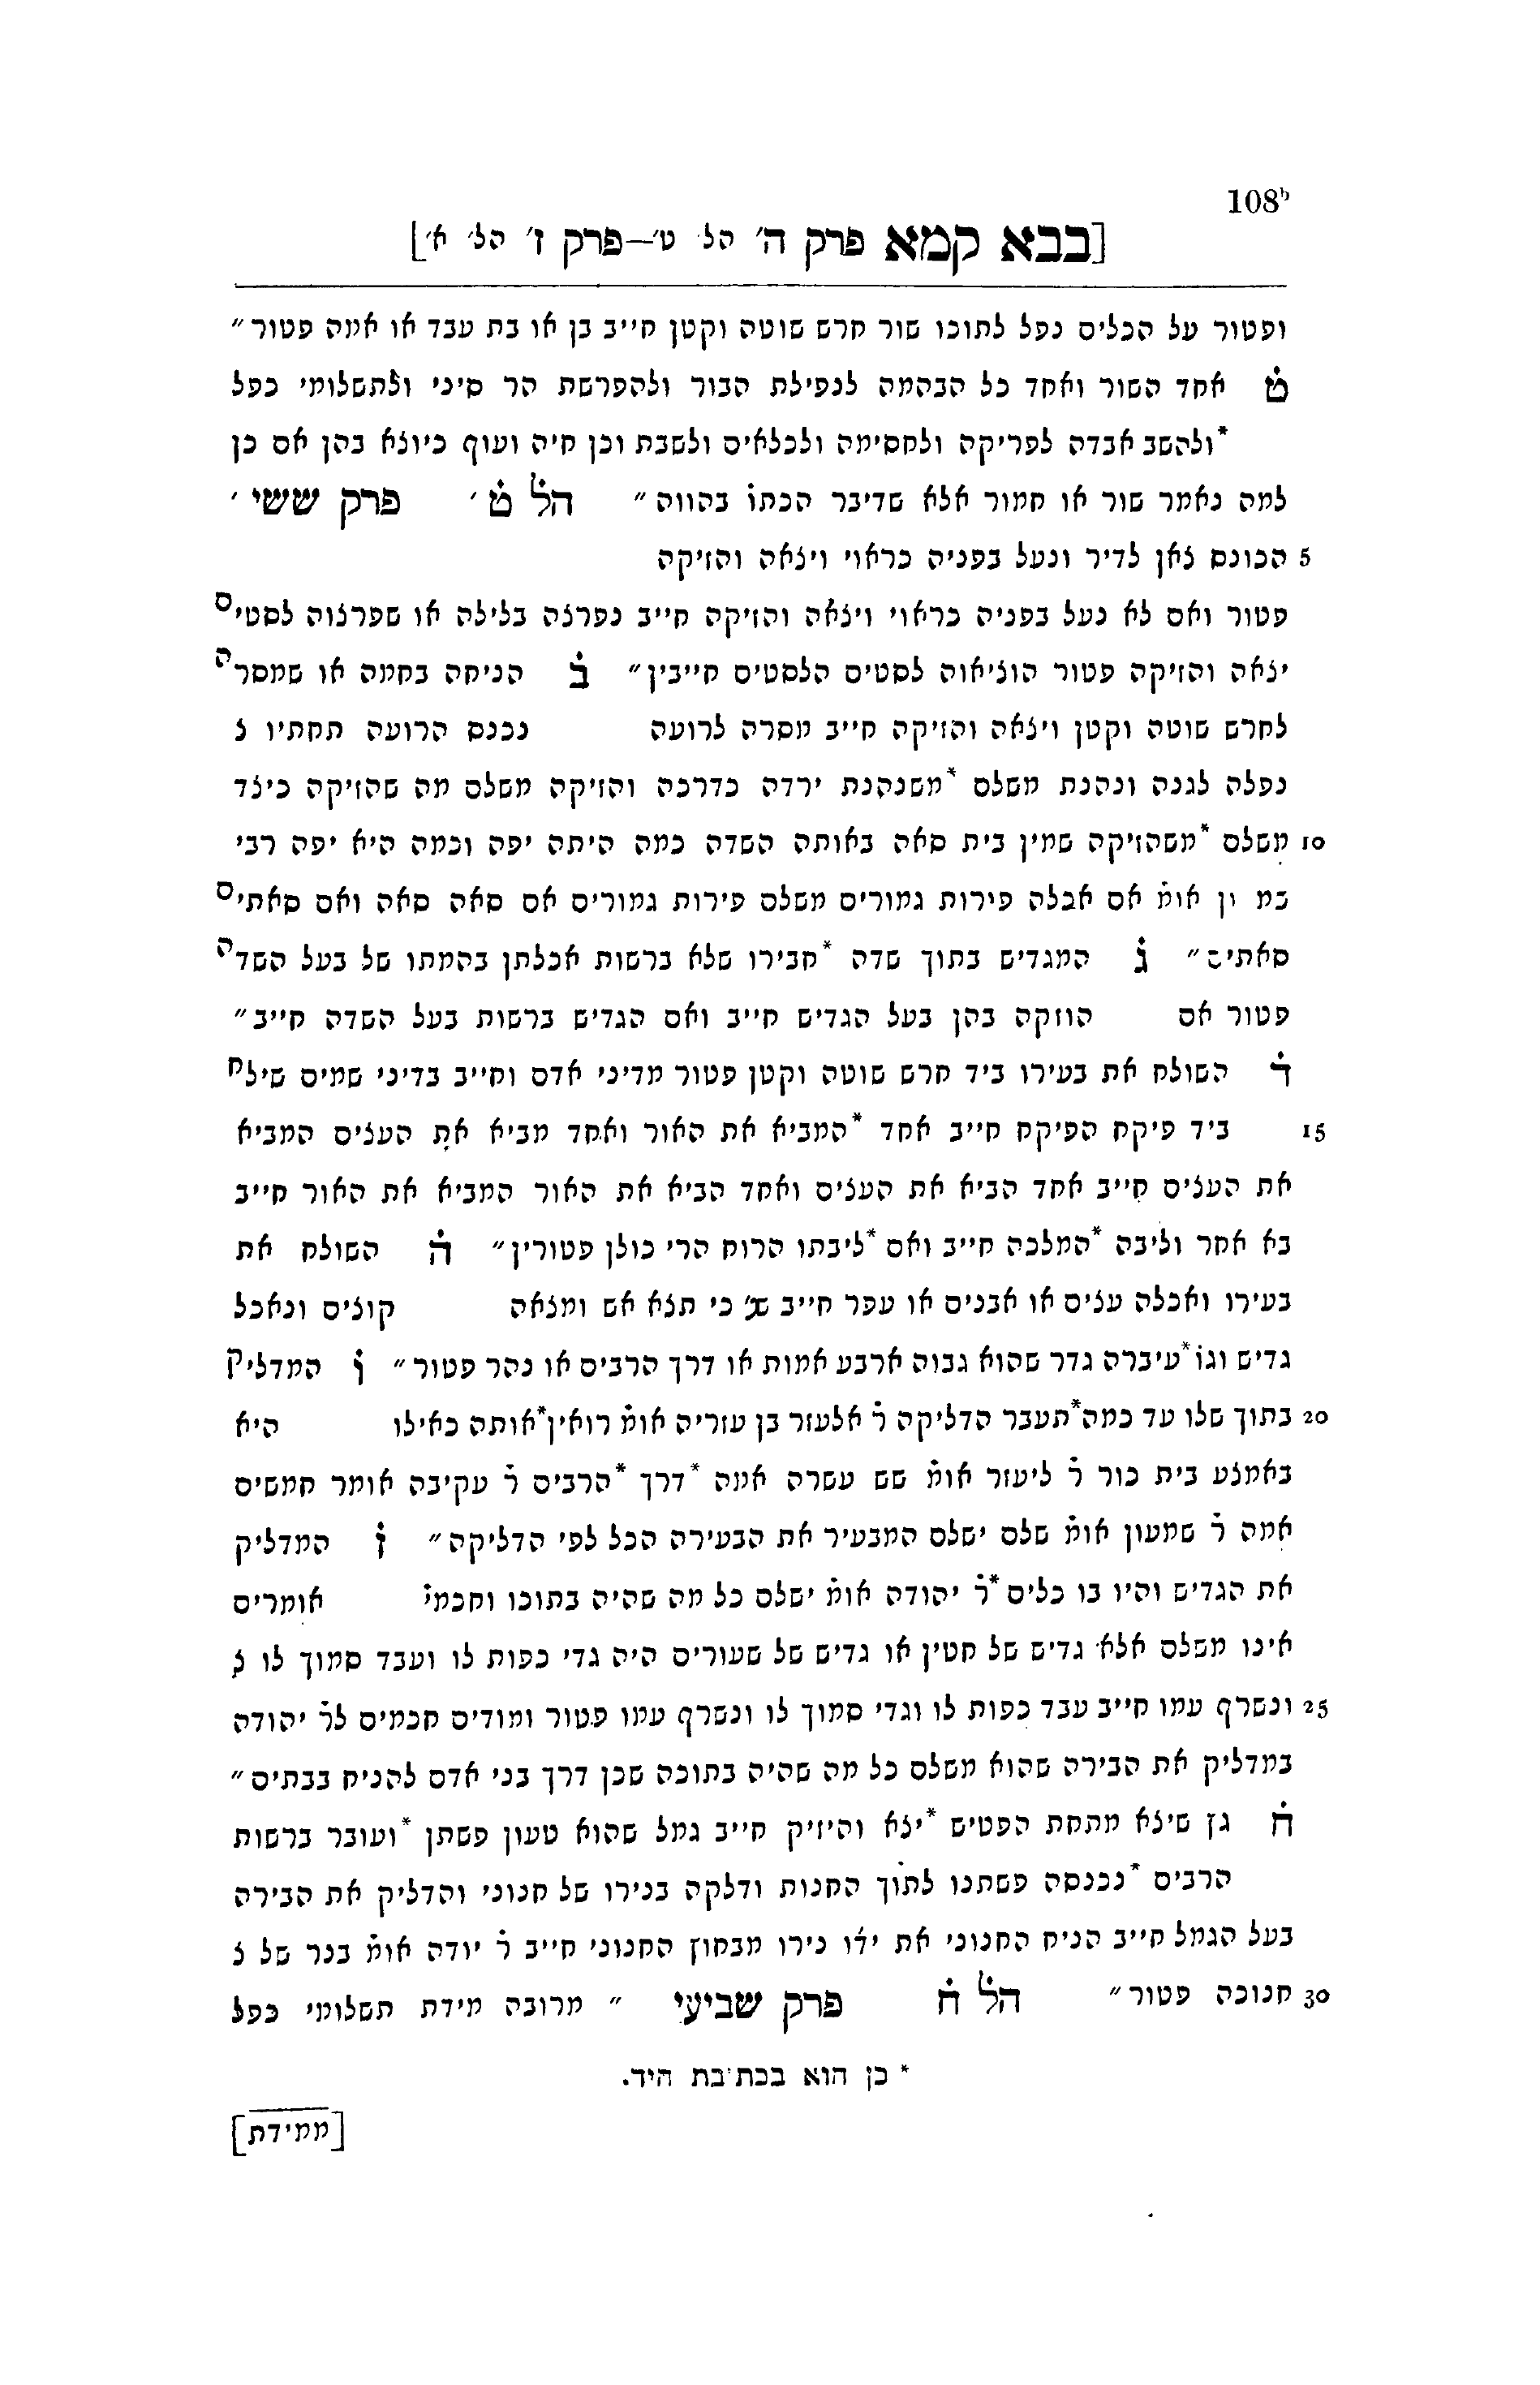 108ᵇ
[בבא קמא פרק ה' הל' ט'—פרק ז' הל' א']
ופטור על הכלים נפל לתוכו שור חרש שוטה וקטן חייב בן או בת עבד או אמה פטור״
ט אחד השור ואחד כל הבהמה לנפילת הבור ולהפרשת הר סיני ולתשלומי כפל
*ולהשב אבדה לפריקה ולחסימה ולכלאים ולשבת וכן חיה ועוף כיוצא בהן אם כן
למה נאמר שור או חמור אלא שדיבר הכתו̇ בהווה״ הל ט̇ ׳ פרק ששי ׳
5 הכונס צאן לדיר ונעל בפניה כראוי ויצאה והזיקה
פטור ואם לא נעל בפניה כראוי ויצאה והזיקה חייב נפרצה בלילה או שפרצוה לסטים
יצאה והזיקה פטור הוציאוה לסטים הלסטים חייבין״ ב̇ הניחה בחמה או שמסרה
לחרש שוטה וקטן ויצאה והזיקה חייב מסרה לרועה נכנס הרועה תחתיו צ
נפלה לגנה ונהנת משלם *משנהנת ירדה כדרכה והזיקה משלם מה שהזיקה כיצד
10 משלם *משהזיקה שמין בית סאה באותה השדה כמה היתה יפה וכמה היא יפה רבי
במ ון אומ̇ אם אבלה פירות גמורים משלם פירות גמורים אם סאה סאה ואם סאתים
סאתים״ ג̇ המגדיש בתוך שדה *חבירו שלא ברשות אכלתן בהמתו של בעל השדה
פטור אם הוזקה בהן בעל הגדיש חייב ואם הגדיש ברשות בעל השדה חייב״
ד̇ השולח את בעירו ביד חרש שוטה וקטן פטור מדיני אדם וחייב בדיני שמים שילח
15 ביד פיקח הפיקח חייב אחד *המביא את האור ואחד מביא את העצים המביא
את העצים חייב אחד הביא את העצים ואחד הביא את האור המביא את האור חייב
בא אחר וליבה *המלבה חייב ואם *ליבתו הרוח הרי כולן פטורין״ ה̇ השולח את
בעירו ואכלה עצים או אבנים או עפר חייב שנ׳ כי תצא אש ומצאה קוצים ונאכל
גדיש וגו̇ *עיברה גדר שהוא גבוה ארבע אמות או דרך הרבים או נהר פטור״ ו̇ המדליק
20 בתוך שלו עד כמה*תעבר הדליקה ר̇ אלעזר בן עזריה אומ̇ רואין*אותה כאילו היא
באמצע בית כור ר̇ ליעזר אומ̇ שש עשרה אמה *דרך *הרבים ר̇ עקיבה אומר חמשים
אמה ר̇ שמעון אומ̇ שלם ישלם המבעיר את הבעירה הכל לפי הדליקה״ ז̇ המדליק
את הגדיש והיו בו כלים*ר̇ יהודה אומ̇ ישלם כל מה שהיה בתוכו וחכמי̇ אומרים
אינו משלם אלא גדיש של חטין או גדיש של שעורים היה גדי כפות לו ועבד סמוך לו צ
25 ונשרף עמו חייב עבד כפות לו וגדי סמוך לו ונשרף עמו פטור ומודים חכמים לר̇ יהודה
במדליק את הבירה שהוא משלם כל מה שהיה בתוכה שכן דרך בני אדם להניח בבתים״
ח̇ גץ שיצא מתחת הפטיש *יצא והיזיק חייב גמל שהוא טעון פשתן *ועובר ברשות
הרבים *נכנסה פשתנו לתוך החנות ודלקה בנירו של חנוני והדליק את הבירה
בעל הגמל חייב הניח החנוני את ידו נירו מבחוץ החנוני חייב ר̇ יודה אומ̇ בנר של צ
30 חנוכה פטור״ הל ח̇ פרק שביעי ״ מרובה מידת תשלומי כפל
* כן הוא בכתיבת היד.
[ממידת]